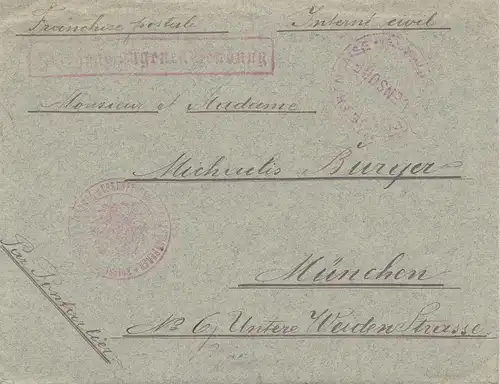 Franchise postale Interné civil
Monsieur et Madame
Michaelis Burger
München
No 6j Untere Weiden Strasse
Par Pontarlier
CENSUR